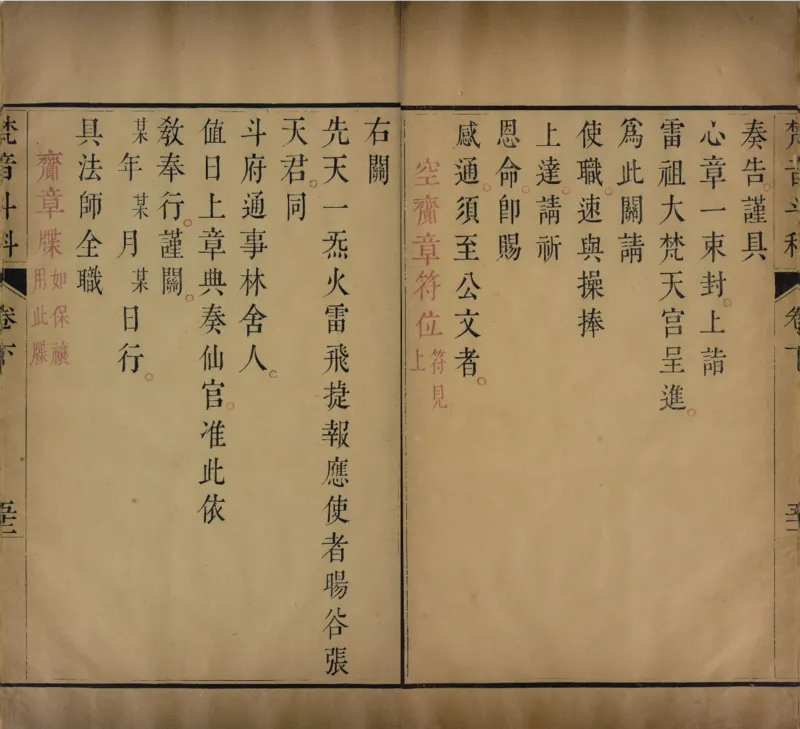 奏告。謹具
心章一束封。上詣
雷祖大梵天宮呈進。
為此關請
使職。速與操捧
上達。請祈
恩命。卽賜
感通。須至公文者。
空齎章符位符見上
右關
先天一炁火雷飛捷報應使者暘谷張
天君。同
斗府通事林舍人。
値日上章典奏仙官。准此依
敎奉行。謹關。
某年某月某日行。
具法師全職
齎章牒如保禳用此牒
梵音斗科
卷下